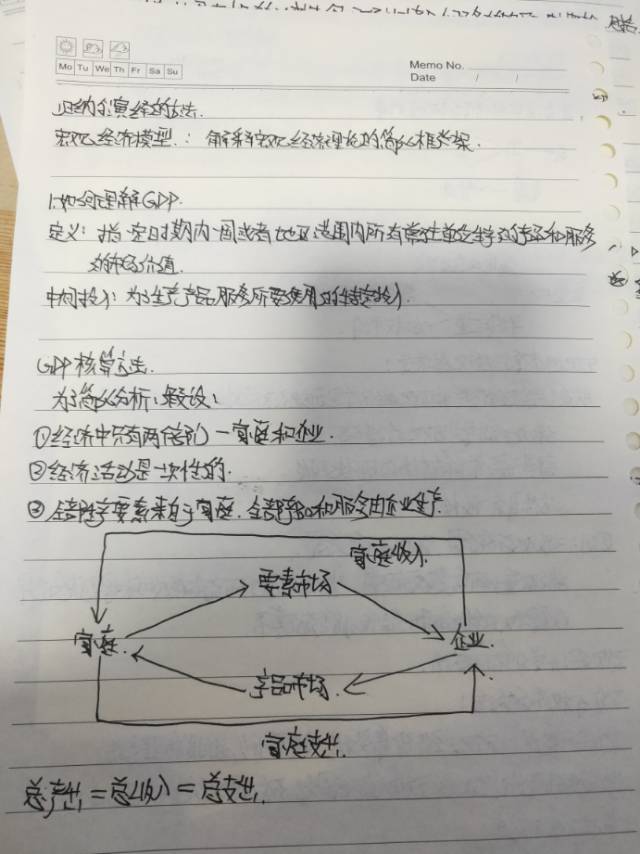 Memo No.
Date / /
Mo Tu We Th Fr Sa Su
归纳与演绎的方法.
宏观经济模型：解释宏观经济理论的简化框架.
1.如何理解GDP.
定义：指一定时期内一国或者地区范围内所有常住单位生产的产品和服务
的市场价值.
中间投入：为了生产产品服务所要使用的
GDP核算方法.
为了简化分析，假设：
①经济中只有两个部门—家庭和企业.
②经济活动是一次性的.
③全部生产要素来自于家庭.全部产品和服务由企业生产.
家庭收入.
要素市场
家庭.
企业.
产品市场.
家庭支出.
总产出=总收入=总支出.